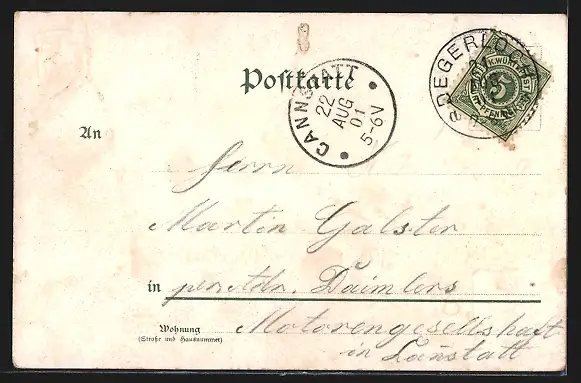 Postkarte
DEGERLOCH
5
CANNSTATT
22
AUG
01
5-6V
An
Herrn
Martin Galster
in per Adr. Daimlers
Wohnung
(Straße und Hausnummer)
Motorengesellschaft
in Canstatt